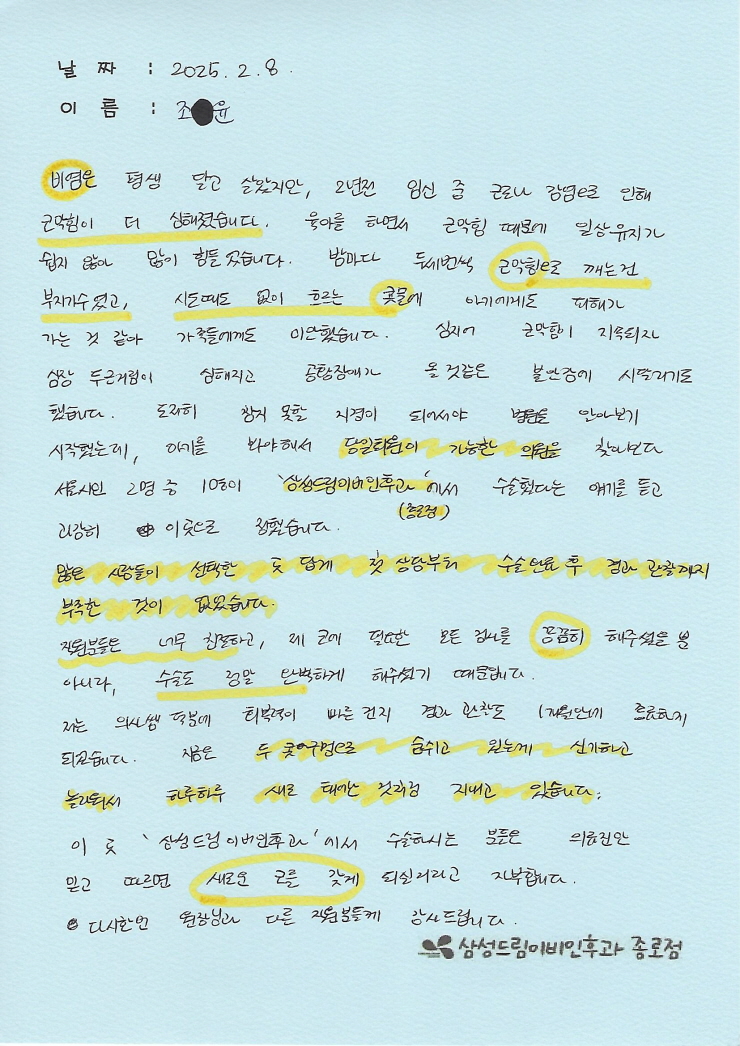 날 짜 : 2025. 2. 8.
이 름 : 조 윤
비염은 평생 달고 살았지만, 2년전 임신 중 코로나 감염으로 인해
코막힘이 더 심해졌습니다. 육아를 하면서 코막힘 때문에 일상유지가
쉽지 않아 많이 힘들었습니다. 밤마다 두세번씩 코막힘으로 깨는건
부지기수였고, 시도때도 없이 흐르는 콧물에 아기에게도 피해가
가는 것 같아 가족들에게도 미안했습니다. 심지어 코막힘이 지속되자
심장 두근거림이 심해지고 공황장애가 올 것같은 불안증에 시달리기도
했습니다. 도저히 참지 못할 지경이 되어서야 병원을 알아보기
시작했는데, 아기를 봐야해서 당일퇴원이 가능한 의원을 찾아보다
서울시민 2명 중 1명이 '삼성드림이비인후과'에서 수술했다는 얘기를 듣고
(종로점)
과감히 이곳으로 정했습니다.
많은 사람들이 선택한 곳 답게 첫 상담부터 수술완료 후 결과 관찰까지
부족한 것이 없었습니다.
직원분들은 너무 친절하고, 제 코에 필요한 모든 검사를 꼼꼼히 해주셨을 뿐
아니라, 수술도 정말 완벽하게 해주셨기 때문입니다.
저는 의사쌤 덕분에 회복력이 빠른건지 결과 관찰도 1개월만에 종료하게
되었습니다. 지금은 두 콧구멍으로 숨쉬고 있는게 신기하고
놀라워서 하루하루 새로 태어난 것처럼 지내고 있습니다.
이 곳 '삼성드림이비인후과'에서 수술하시는 분들은 의료진만
믿고 따르면 새로운 코를 갖게 되실거라고 자부합니다.
다시한번 원장님과 다른 직원분들께 감사드립니다.
삼성드림이비인후과 종로점